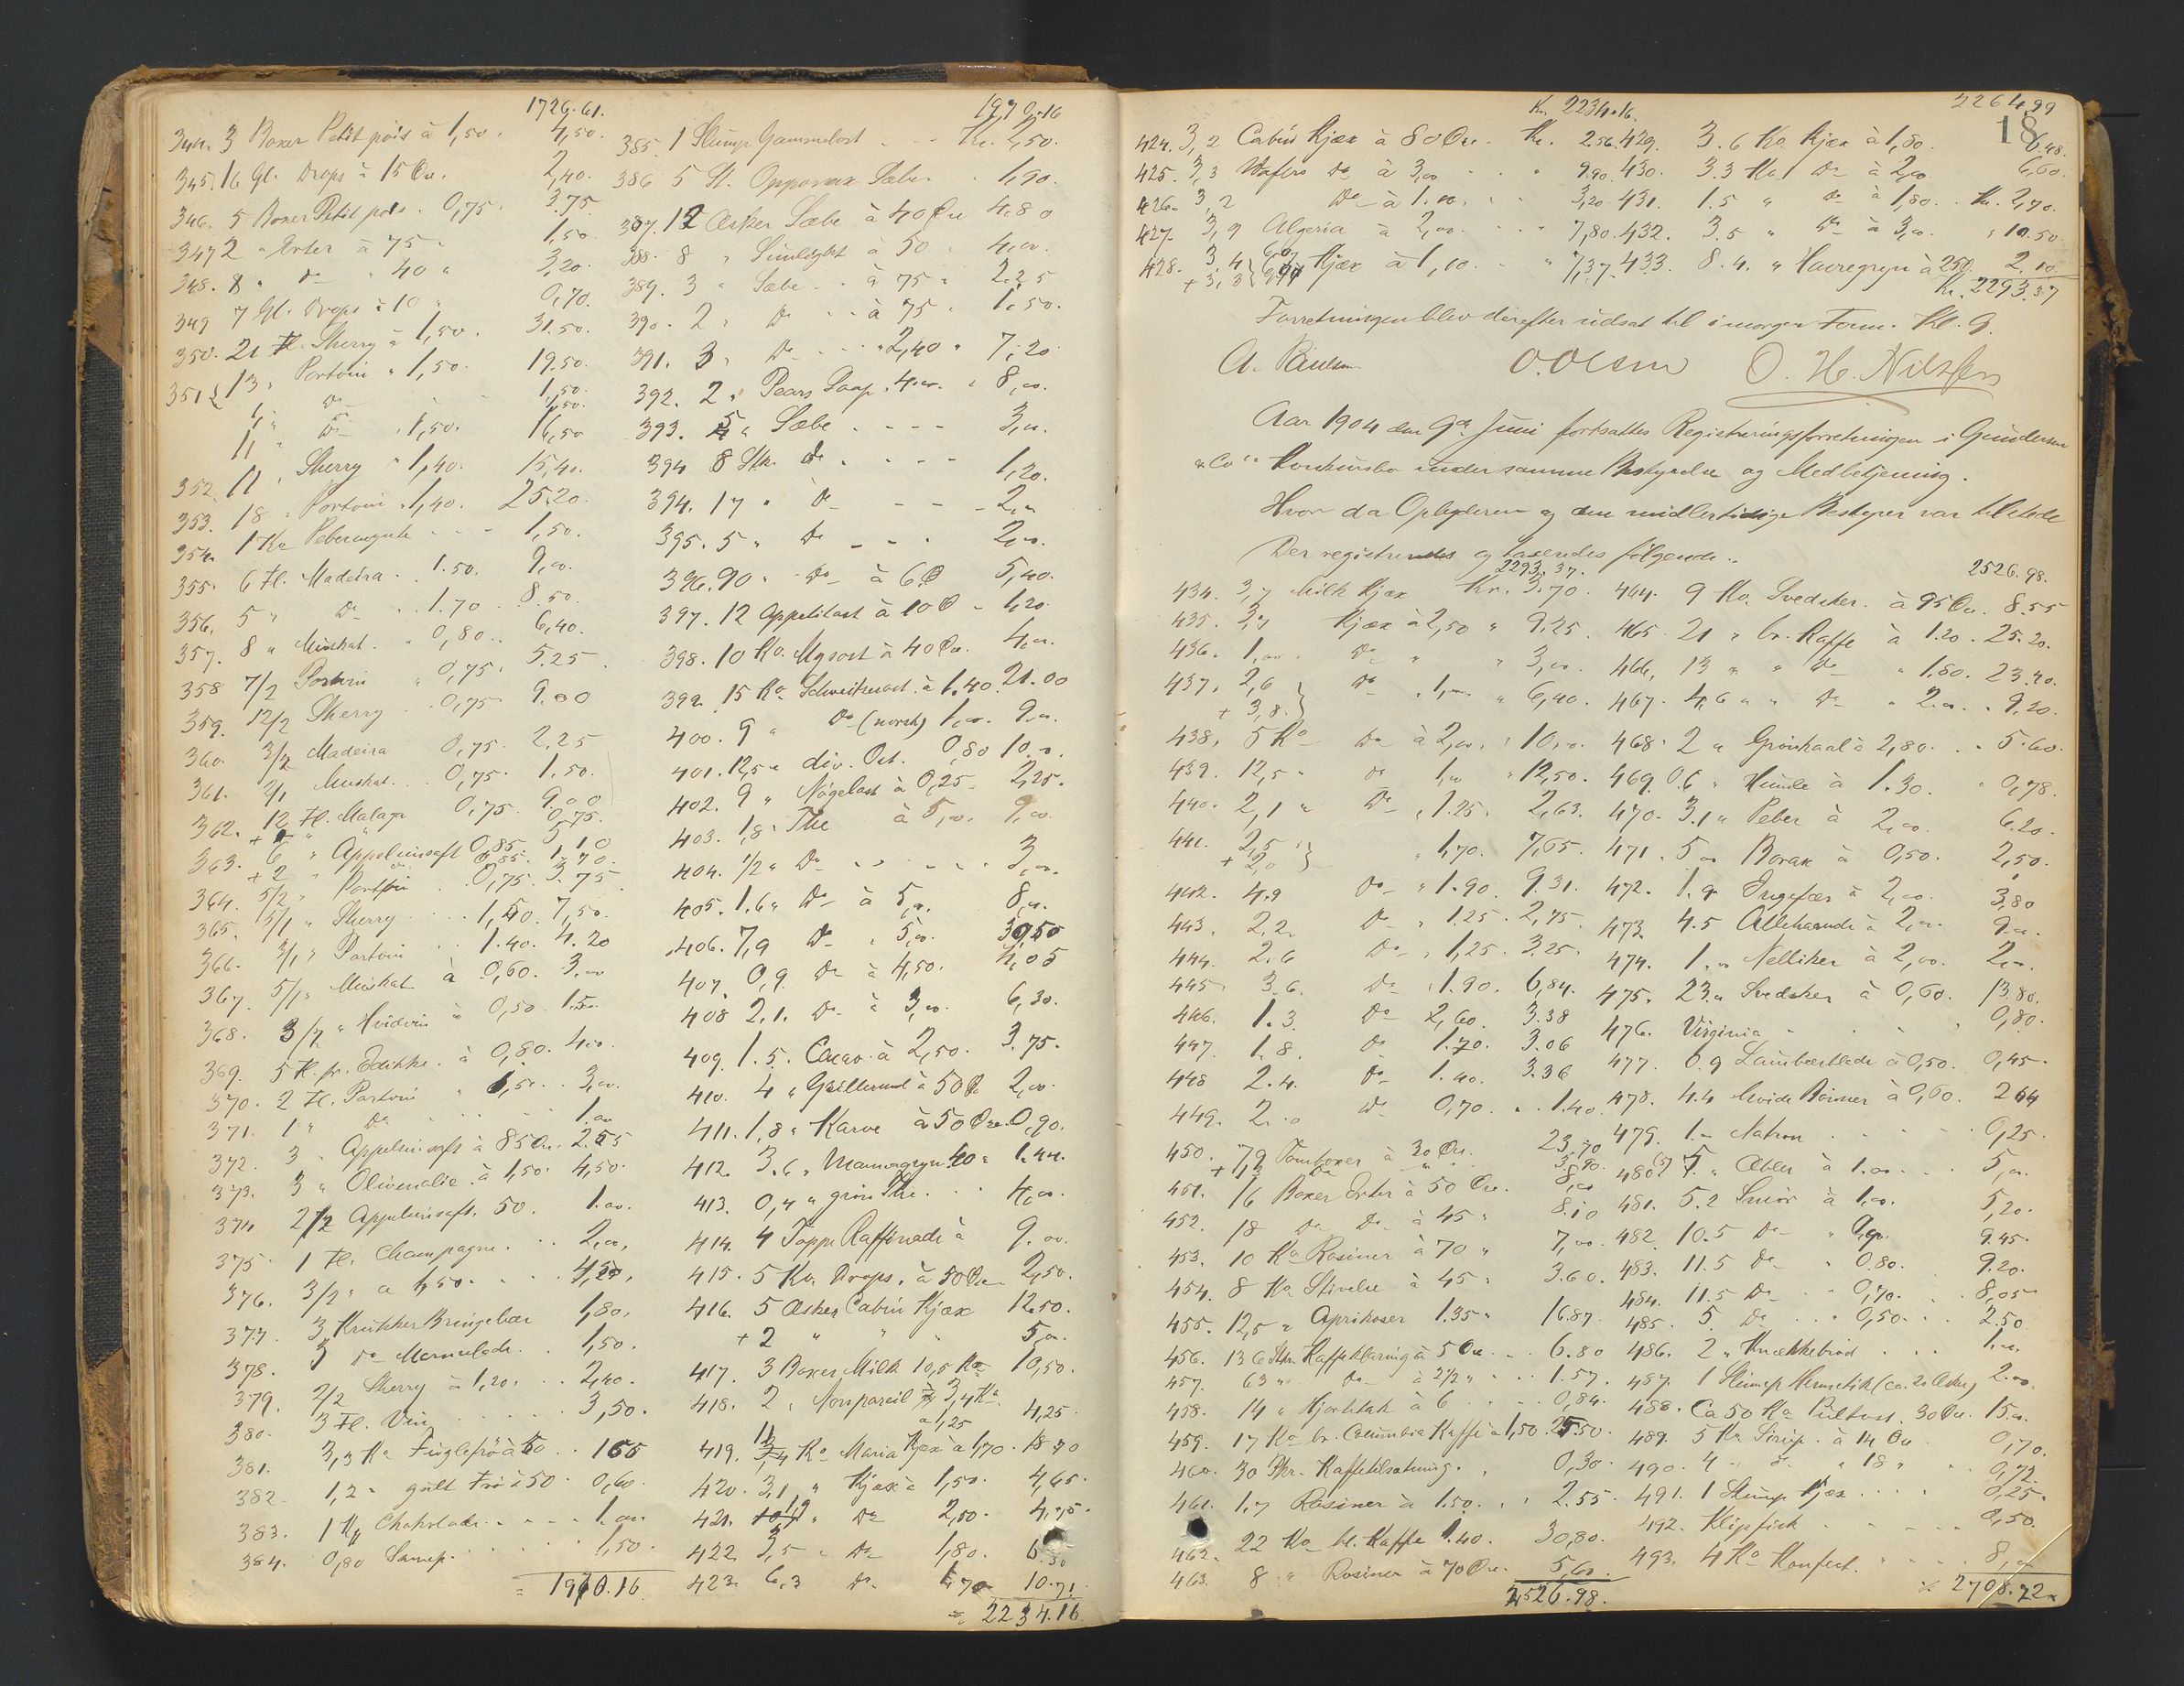 1726.61.
344. 3 Boxer Petit pois à 1,50. 4,50.
345. 16 Gl. Drops à 15 Øre. 2,40.
346. 5 Boxer Petit pois. 0,75. 3.75.
347 2 " Erter à 75 " 1,50.
348. 8 " do " 40 " 3,20.
349 7 Gl. Drops à 10 " 0,70.
350. 21 Fl. Sherry à 1,50. 31.50.
351 { 13 " Portvin " 1,50. 19.50.
1 " Do 1,50.
11 " Do 1,50. 16,50
352. 11 " Sherry " 1,40. 15,40.
353. 18 " Portvin " 1,40. 25.20.
354. 1 Ko Pebermynte - - - 1,50.
355. 6 Fl. Madeira. 1.50. 9,00.
356. 5 " Do . . 1.70 8.50.
357. 8 " Muskat. " 0,80. 6,40.
358 7/2 Portvin " 0,75. 5.25.
359. 12/2 Sherry . 0,75. 9.00
360. 3/2 Madeira 0,75. 2.25
361. 2/1 Muskat. 0,75. 1.50.
362. 12 Fl. Malaga 0,75. 9.00
+ 1 " " 0,75.
363. 6 " Appelsinsaft 0,85. 5 10
+ 2 " " 0,85. 1.70.
364. 5/2 " Portvin . 0,75. 3.75
365. 5/1 " Sherry . . . 1,50. 7,50.
366. 3/1 " Portvin . . 1.40. 4.20
367. 5/1 " Muskat à 0,60. 3,00
368. 3/2 " Hvidvin à 0,50 1.50.
369. 5 Fl. fr. Edikke. à 0,80. 4,00.
370. 2 Fl. Portvin " 1,50. 3,00.
371. 1 " Do 1.00
372. 3 " Appelsinsaft à 85 Øre. 2.55
373. 3 " Olivenolie. à 1,50. 4,50.
374 2/2 Appelsinsaft. 50. 1.00.
375. 1 Fl. Champagne. . . 2,00,
376. 3/2 " a 1,50. . . . 4,50,
377. 3 Krukker Bringebær 1,80,
378. 3 Do Marmelade. . 1,50.
379. 2/2 Sherry à 1,20. . . 2,40.
380. 3 Fl. Vin . . . . . 3,50.
381. 3,3 Ko Fuglefrø à 50 . . 165
382. 1,2 " gult Frø à 50. 0,60.
383. 1 Ko Chokolade . . - - 1.00
384. 0,80 Sennep. . . . . 1,50.
= 1970.16
1970.16
385. 1 Slump Gammelost . - - Kr. 2,50.
386 5 St. Opponax Sæbe. 1,90.
387. 12 Æsker Sæbe à 40 Øre 4.80
388. 8 " Sunlight à 50 " 4,00.
389. 3 " Sæbe . . à 75 " 2.25
390. 2 " Do . . à 75 " 1.50.
391. 3 " Do . . " 2,40 " 7,20
392. 2 " Pears Soap. 4.00. " 8,00.
393. 5 " Sæbe . - - - 3,00.
394 8 Stk. do . - - - 1,20.
394. 17 " do - - - 2,00
395. 5 " Do - - . 2,00.
396. 90 " Do à 6 Ø 5,40.
397. 12 Appetitost à 10 Ø - 1,20.
398. 10 Ko. Mysost à 40 Øre. 4,00.
399. 15 Ko. Schweitserost. à 1.40. 21.00
400. 9 " Do (norsk) 1,00. 9,00.
401. 12,5 " div. Ost. 0,80 10,00.
402. 9 " Nøgelost à 0,25. 2,25.
403. 1,8 " The à 5,00. 9,00.
404. 1/2 " Do . . . . . 3,00.
405. 1.6 " Do à 5,00. 8,00.
406. 7,9 Do " 5,00. 39,50
407. 0,9. Do à 4,50. 4,05
408 2.1. Do à 3,00. 6,30.
409. 1.5. Cacao à 2,50. 3.75.
410. 4 " Grillermel à 50 Ø 2,00.
411. 1,8 " Karve à 50 Øre. 0,90.
412. 3.6 " Mannagryn 40 " 1.44.
413. 0,4 " grøn The. . . 4,00.
414. 4 Toppe Raffinade à 9.00.
415. 5 Ko. Drops. à 50 Øre 2,50.
416. 5 Æsker Cabin Kjæx 12.50.
+ 2 " " 5,00.
417. 3 Boxer Milk 10,5 Ko 10,50.
418. 2 " Nonpareil 3,4 Ko à 1,25 4,25.
419. 11 Ko Maria Kjæx à 1,70. 18 70
420. 3,1 " Kjæx à 1,50. 4,65.
421. 1,9 " Do 2,50. 4,75.
422. 3,5 " Do 1,80. 6.30
423. 6,3 Do 1,70 10.71
= 2234.16
Kr. 2234.16.
424. 3,2 Cabin Kjæx à 80 Øre. Kr. 2.56.
425. 3,3 Wafers Do à 3,00 . . " 9,90.
426. 3,2 Do à 1.00. . . 3,20
427. 3,9 Algeria à 2,00. . . " 7,80.
428. 3,4 + 3,3 } Kjæx à 1,10. - " 7,37.
2264,99
18
429. 3.6 Ko. Kjæx à 1,80. 6.48.
430. 3.3 Ko. Do à 2,00 6,60.
431. 1.5 " Do à 1,80. . Kr. 2,70.
432. 3.5 " Do à 3,00. " 10.50.
433. 8.4. " Havregryn à 250. 2.10.
Kr. 2293.37
Forretningen blev derefter udsat til i morgen Form. Kl. 9.
A. Paulsen O. Olsen O. H. Nilssen
Aar 1904 den 9de Juni fortsattes Registreringsforretningen i Gundersen
"& Co" Konkursbo under samme Bestyrelse og Medbetjening.
Hvor da Opbyderen og den midlertidige Bestyrer var tilstede
Der registreredes og taxeredes følgende..
2293.37.
434. 3,7 Milk Kjæx Kr. 3.70.
435. 3,7 Kjæx à 2,50 " 9.25.
436. 1,00. Do " " 3,00.
437. 2,6 + 3,8. } Do " 1,00. " 6,40.
438. 5 Ko Do à 2,00. " 10,00.
439. 12,5 " Do 1,00 " 12,50.
440. 2,1 " Do " 1.25. 2,63.
441. 2,5 + 2,0 } " 1,70. 7,65.
442. 4.9 Do " 1.90. 9.31.
443. 2.2. Do " 1.25. 2,75.
444. 2.6 Do " 1,25. 3.25.
445. 3.6. Do " 1.90. 6,84.
446. 1.3. Do 2,60. 3.38
447. 1.8. Do 1.70. 3.06
448 2.4. Do 1.40. 3.36
449. 2.0 Do 0,70. . . 1.40.
450. 79 Tomboxer à 30 Øre. 23,70
+ 13 Do " " 3.90.
451. 16 Boxer Erter à 50 Øre. 8,00
452. 18 Do Do à 45 " 8.10
453. 10 Ko Rosiner à 70 " 7,00.
454. 8 Ko Stivelse à 45 " 3.60.
455. 12,5 " Aprikoser 1.35 " 16.87.
456. 136 Stkr. Kaffeklaring à 5 Øre. . . 6.80
457. 63 " Do à 2 1/2 " . . 1.57.
458. 14 " Hjortetak à 6 . . . 0,84.
459. 17 Ko br. Columbia Kaffe à 1,50. 25.50.
460. 30 Pkr. Kaffetilsætning. . 0,30.
461. 1.7 Rosiner à 1.50. . . 2.55.
462. 22 Ko bl. Kaffe 1.40. 30,80.
463. 8 " Rosiner à 70 Øre. 5,60.
2526.98.
2526.98.
464. 9 Ko. Svedsker. à 95 Øre. 8.55
465. 21 " br. Kaffe à 1.20. 25.20.
466. 13 " " Do " 1.80. 23.40.
467. 4,6 " " Do " 2.00. " 9,20.
468. 2 " Grønkaal à 2,80. . " 5.60.
469. 0.6 " Humle à 1.30. " 0,78.
470. 3.1 " Peber à 2,00. 6.20.
471. 5 " Borax à 0,50. 2,50.
472. 1.9 Ingefær à 2,00. 3,80
473. 4.5 Allehaande à 2,00. 9.00.
474. 1.00 Nelliker à 2,00. 2,00.
475. 23 " Svedsker à 0,60. 13.80.
476. Virginia . . . . . 0,80.
477. 0.9 Laurbærblade à 0,50. 0,45.
478. 4.4 hvide Bønner à 0,60. 2 64
479. 1.- Natron . . . . . 0,25.
480. 5 " Æbler à 1.00. . . 5,00.
481. 5.2 Smør à 1,00. 5,20.
482 10.5 Do " 0,90. 9.45.
483. 11.5 Do " 0.80. 9.20.
484. 11.5 Do " 0,70. . . 8,05
485. 5. Do . . . 0,50. . . 2.50.
486. 2 " Knækkebrød . . . 1.00.
487. 1 Slump Hermetik (ca. 20 Æsker) 2.00.
488. Ca 50 Ko Pultost. 30 Øre. 15.00.
489. 5 Ko Sirup. à 14 Øre 0,70.
490. 4 " do " 18 " 0,72.
491. 1 Slump Kjæx . . . . 0,25.
492. Klipfisk . . . . . 0,50.
493. 4 Ko Konfect. . . . . 8,00
2708.72